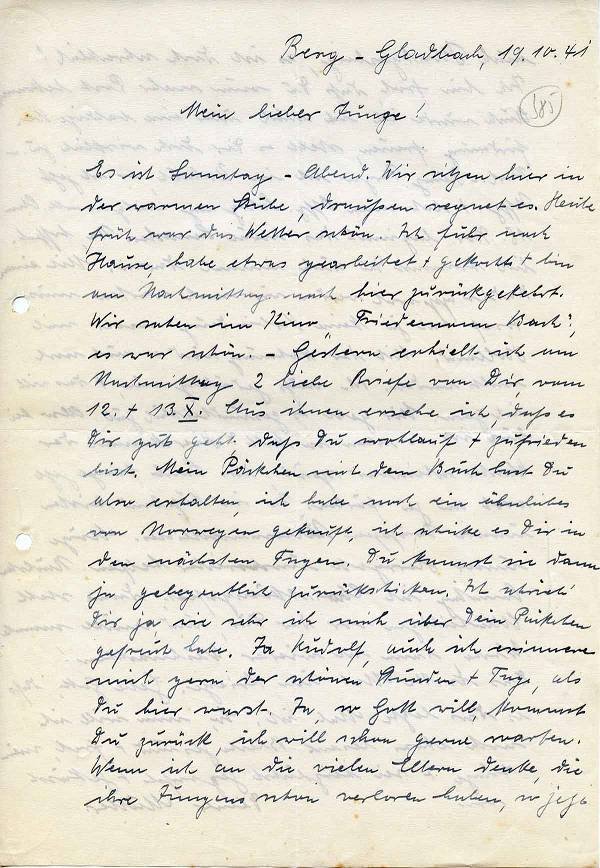 Berg - Gladbach, 19.10.41
385
Mein lieber Junge!
Es ist Sonntag - Abend. Wir sitzen hier in
der warmen Stube, draußen regnet es. Heute
früh war das Wetter schön. Ich fuhr nach
Hause, habe etwas gearbeitet + gekocht + bin
am Nachmittag nach hier zurückgekehrt.
Wir sahen im Kino "Friedemann Bach",
es war schön. - Gestern erhielt ich am
Nachmittag 2 liebe Briefe von Dir, vom
12. + 13. X. Aus ihnen ersehe ich, daß es
Dir gut geht, daß Du wohlauf + zufrieden
bist. Mein Päckchen mit dem Buch hast Du
also erhalten, ich habe noch ein ähnliches
von Norwegen gekauft, ich schicke es Dir in
den nächsten Tagen. Du kannst sie dann
ja gelegentlich zurückschicken. Ich schrieb
Dir ja wie sehr ich mich über Dein Päckchen
gefreut habe. Ja Rudolf, auch ich erinnere
mich gern der schönen Stunden + Tage, als
Du hier warst. Ja, so Gott will, kommst
Du zurück, ich will schon gerne warten.
Wenn ich an die vielen Eltern denke, die
ihre Jungens schon verloren haben, so